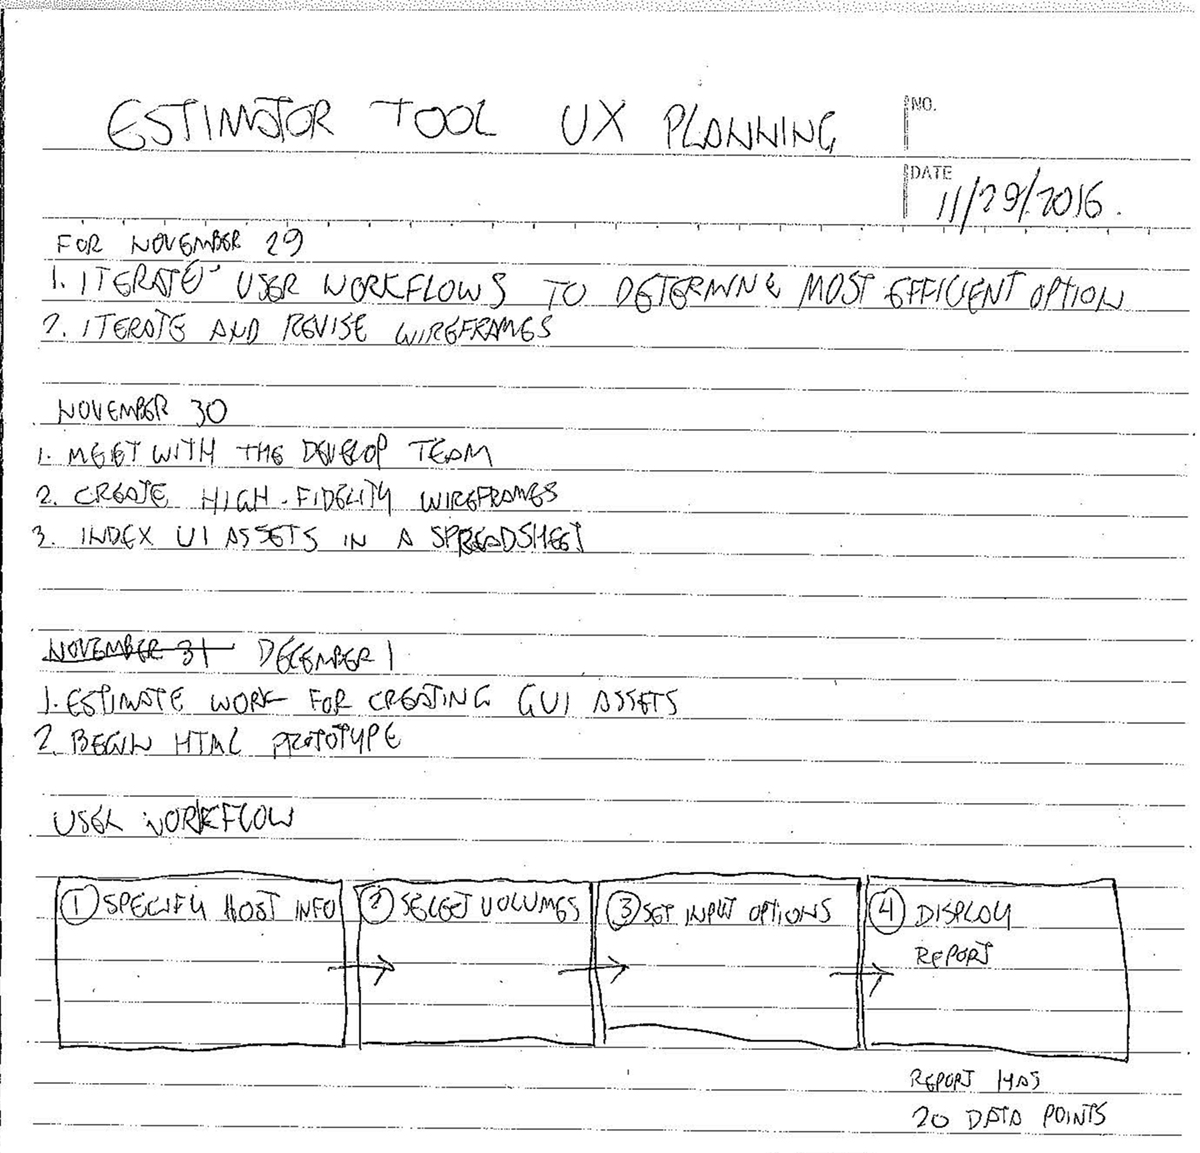 ESTIMATOR TOOL UX PLANNING
NO.
DATE
11/29/2016.
FOR NOVEMBER 29
1. ITERATE USER WORKFLOWS TO DETERMINE MOST EFFICIENT OPTION
2. ITERATE AND REVISE WIREFRAMES
NOVEMBER 30
1. MEET WITH THE DEVELOP TEAM
2. CREATE HIGH-FIDELITY WIREFRAMES
3. INDEX UI ASSETS IN A SPREADSHEET
NOVEMBER 31 DECEMBER 1
1. ESTIMATE WORK FOR CREATING GUI ASSETS
2. BEGIN HTML PROTOTYPE
USER WORKFLOW
1 SPECIFY HOST INFO
2 SELECT VOLUMES
3 SET INPUT OPTIONS
4 DISPLAY
REPORT
REPORT HAS
20 DATA POINTS